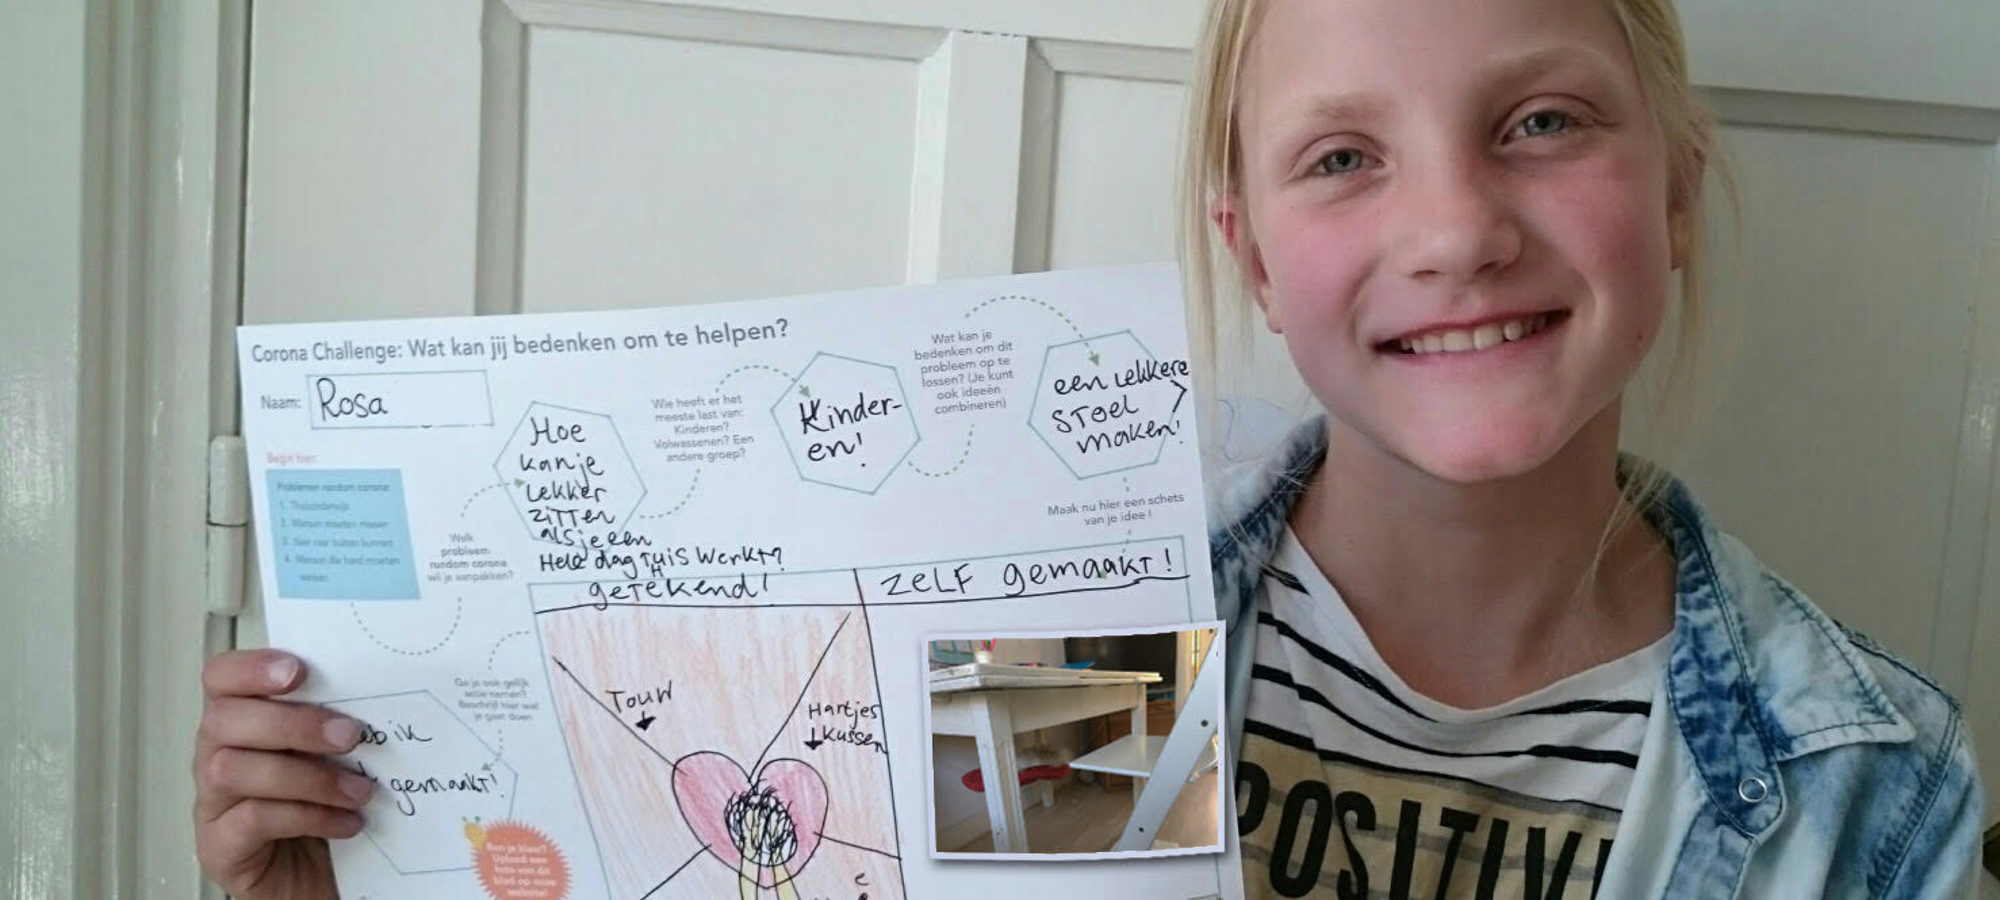 Corona Challenge: Wat kan jij bedenken om te helpen?
Naam: Rosa
Begin hier:
Problemen rondom corona
1. Thuisonderwijs
2. Mensen moeten missen
3. Niet naar buiten kunnen
4. Mensen die hard moeten
werken
Welk
probleem
rondom corona
wil je aanpakken?
Hoe
kan je
Lekker
zitten
als je een
Hele dag THUIS werkt?
Wie heeft er het
meeste last van:
Kinderen?
Volwassenen? Een
andere groep?
Kinder-
en!
Wat kan je
bedenken om dit
probleem op te
lossen? (Je kunt
ook ideeën
combineren)
een Lekkere
stoel
maken!
Maak nu hier een schets
van je idee!
getekend!
zelf gemaakt!
Touw
Hartjes
kussen
Ga je ook gelijk
actie nemen?
Beschrijf hier wat
je gaat doen
ik
gemaakt!
Ben je klaar?
Upload een
foto van dit
blad op onze
website!
POSITIV